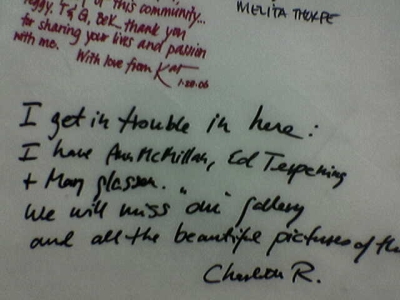 of this community...
Peggy, T & G, Bek thank you
for sharing your lives and passion
with me. With love from Kat
1-28-06
MELITA THORPE
I get in trouble in here:
I have Ann McMillan, Ed Terpening
+ Mary glasson. " "
We will miss our gallery
and all the beautiful pictures of the
R.